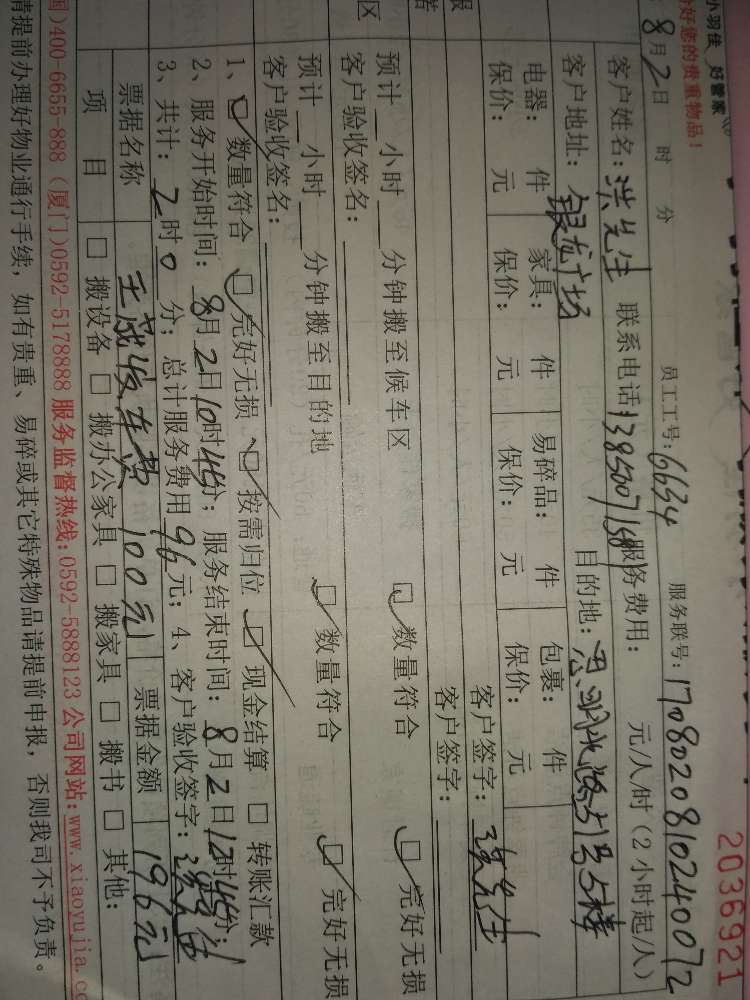 小羽佳 好管家
好您的贵重物品！
2036921
员工工号：6634 服务联号：1708020810240072
8月2日 时 分
客户姓名：洪先生 联系电话 服务费用： 元/人/时（2小时起/人）
客户地址：银龙广场 目的地：
电器： 件 家具： 件 易碎品： 件 包裹： 件
保价： 元 保价： 元 保价： 元 保价： 元
客户签字：
客户签字：
区
预计__小时__分钟搬至候车区 ☑数量符合 ☑完好无损
客户验收签名：
预计__小时__分钟搬至目的地 ☑数量符合 ☑完好无损
客户验收签名：
1、☑数量符合 ☑完好无损 ☑按需归位 ☑现金结算 □转账汇款
2、服务开始时间：8月2日10时45分；服务结束时间：8月2日12时45分；
3、共计：2时0分；总计服务费用96元；4、客户验收签字：
票据名称 车费 100元 票据金额 196元
项目 □搬设备 □搬办公家具 □搬家具 □搬书 □其他：
国)400-6655-888（厦门)0592-5178888 服务监督热线:0592-5888123 公司网站:www.xiaoyujia.c
请提前办理好物业通行手续，如有贵重、易碎或其它特殊物品请提前申报，否则我司不予负责。